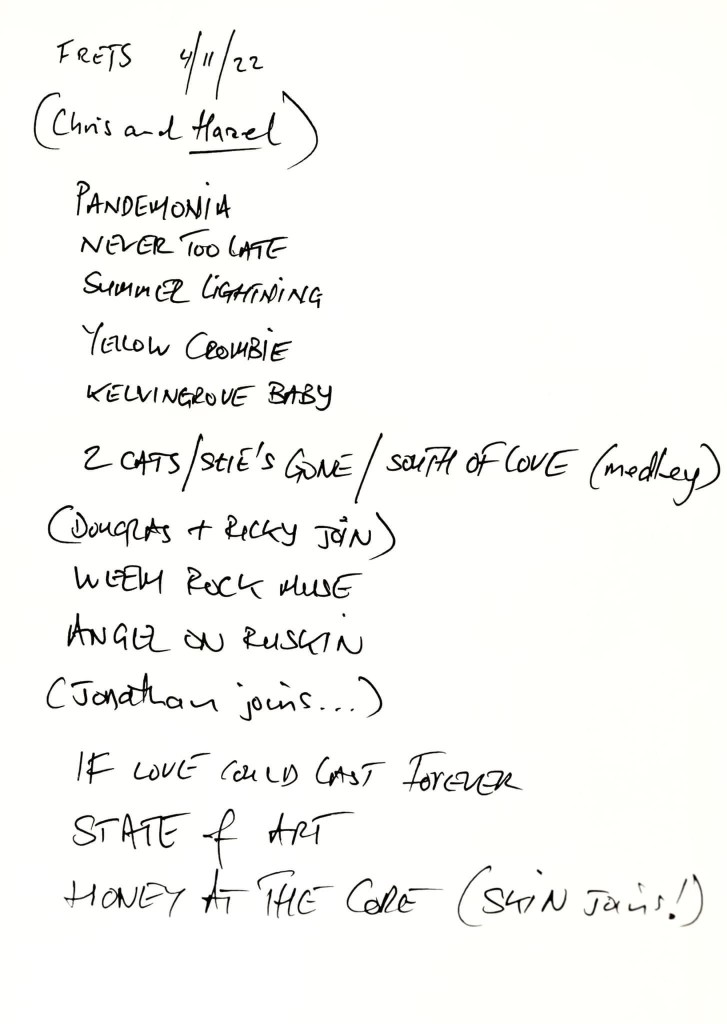 FRETS 4/11/22
(Chris and Hazel)
PANDEMONIA
NEVER TOO LATE
SUMMER LIGHTNING
YELLOW CROMBIE
KELVINGROVE BABY
2 CATS/SHE'S GONE/SOUTH OF LOVE (medley)
(DOUGLAS + RICKY JOIN)
WEEM ROCK MUSE
ANGEL ON RUSKIN
(Jonathan joins...)
IF LOVE COULD LAST FOREVER
STATE OF ART
HONEY AT THE CORE (SKIN JOINS!)